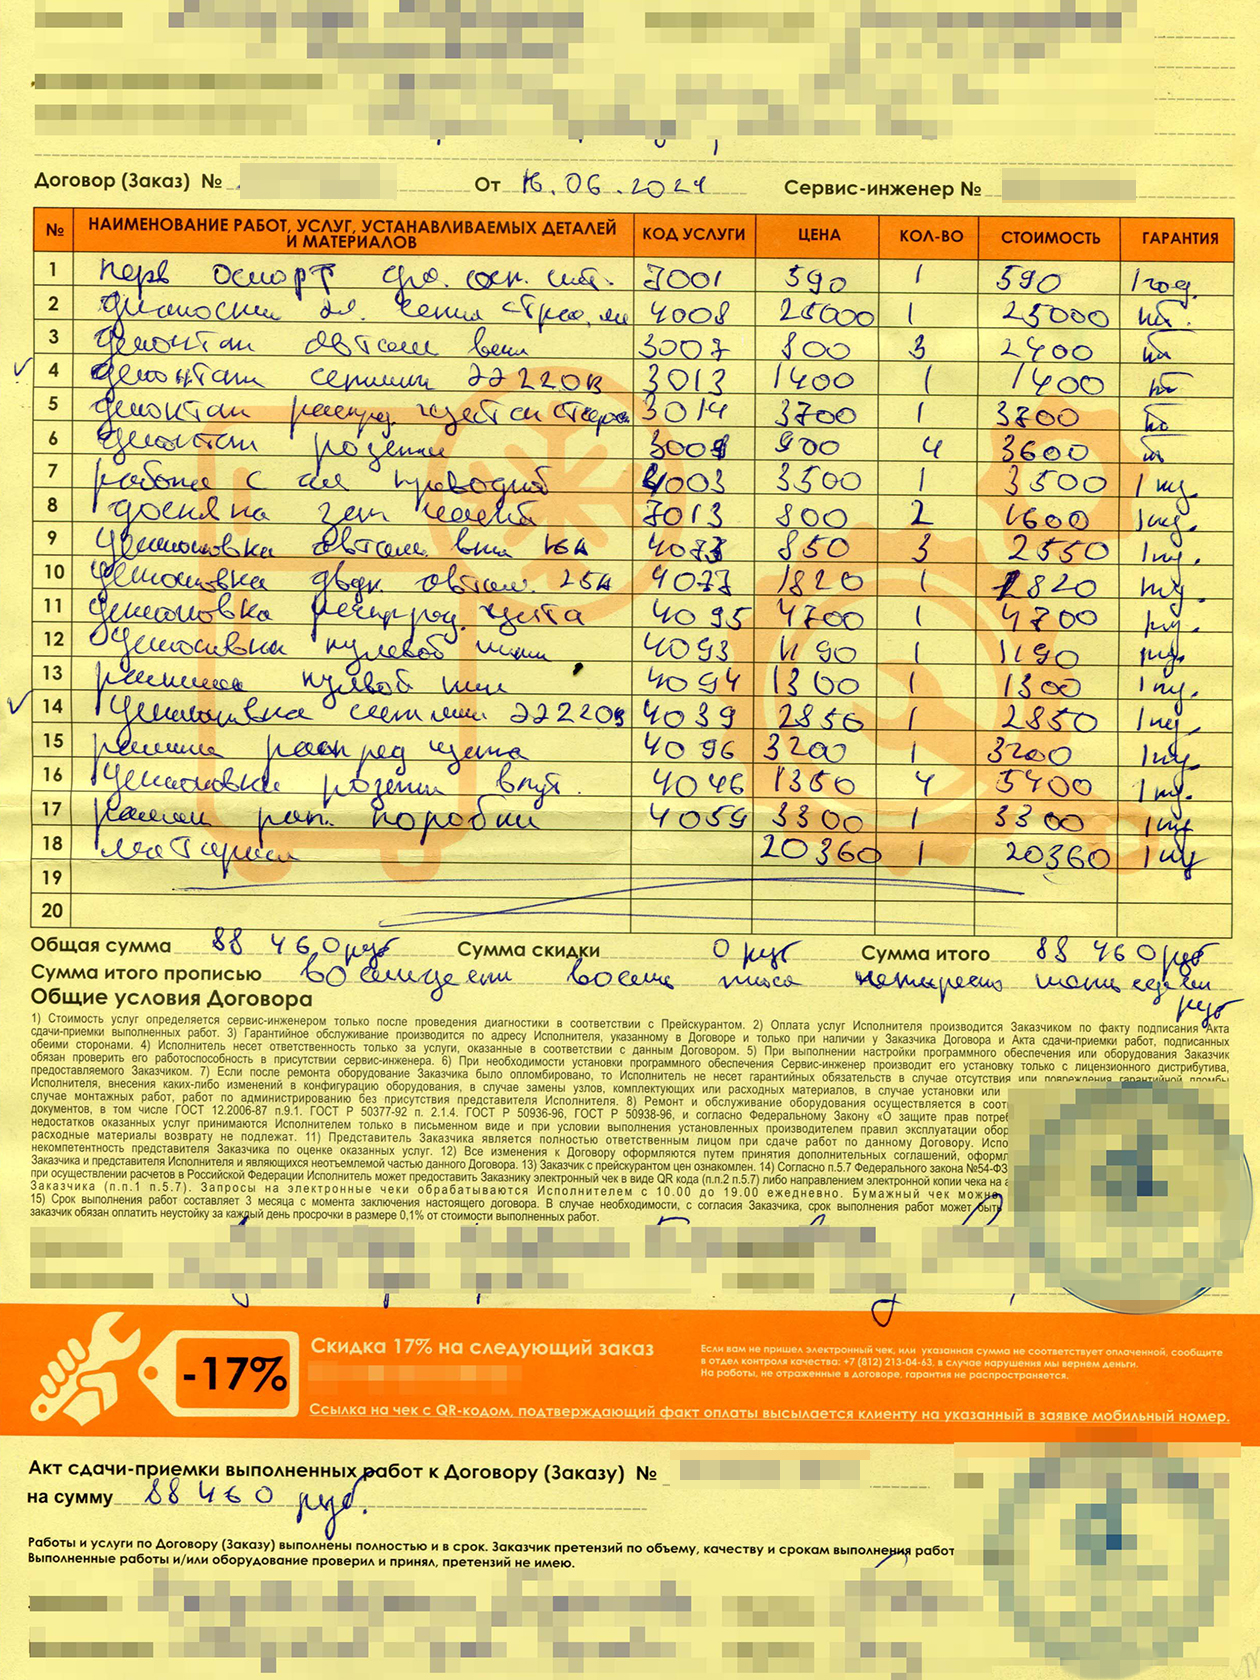 Договор (Заказ) № От 16.06.2024 Сервис-инженер №
№ НАИМЕНОВАНИЕ РАБОТ, УСЛУГ, УСТАНАВЛИВАЕМЫХ ДЕТАЛЕЙ И МАТЕРИАЛОВ КОД УСЛУГИ ЦЕНА КОЛ-ВО СТОИМОСТЬ ГАРАНТИЯ
1 перв осмотр 7001 590 1 590 1 год.
2 4008 25000 1 25000
3 демонтаж автом вык 3007 800 3 2400
4 демонтаж 220в 3013 1400 1 1400
5 демонтаж распред. щета 3014 3700 1 3700
6 демонтаж розетки 900 4 3600
7 работа с ал проводкой 4003 3500 1 3500 1 год.
8 7013 800 2 1600 1 год.
9 установка автом. вык 16А 850 3 2550 1 год.
10 установка автом. 25А 4077 1820 1 1820 год.
11 установка распред. щета 4095 4700 1 4700 год.
12 установка нулевой шины 4093 1190 1 1190 год.
13 нулевой шин 4094 1300 1 1300 1 год.
14 установка 220в 4039 2850 1 2850 1 год.
15 распред щета 4096 3200 1 3200 1 год.
16 установка розетки внут. 4046 1350 4 5400 1 год.
17 коробки 4059 3300 1 3300 1 год
18 материал 20360 1 20360 1 год
19
20
Общая сумма 88 460 руб Сумма скидки 0 руб Сумма итого 88 460 руб
Сумма итого прописью восемьдесят восемь тысяч четыреста шестьдесят
руб
Общие условия Договора
1) Стоимость услуг определяется сервис-инженером только после проведения диагностики в соответствии с Прейскурантом. 2) Оплата услуг Исполнителя производится Заказчиком по факту подписания Акта
сдачи-приемки выполненных работ. 3) Гарантийное обслуживание производится по адресу Исполнителя, указанному в Договоре и только при наличии у Заказчика Договора и Акта сдачи-приемки работ, подписанных
обеими сторонами. 4) Исполнитель несет ответственность только за услуги, оказанные в соответствии с данным Договором. 5) При выполнении настройки программного обеспечения или оборудования Заказчик
обязан проверить его работоспособность в присутствии сервис-инженера. 6) При необходимости установки программного обеспечения Сервис-инженер производит его установку только с лицензионного дистрибутива,
предоставляемого Заказчиком. 7) Если после ремонта оборудование Заказчика было опломбировано, то Исполнитель не несет гарантийных обязательств в случае отсутствия или повреждения гарантийной пломбы
Исполнителя, внесения каких-либо изменений в конфигурацию оборудования, в случае замены узлов, комплектующих или расходных материалов, в случае установки или
случае монтажных работ, работ по администрированию без присутствия представителя Исполнителя. 8) Ремонт и обслуживание оборудования осуществляется в соот
документов, в том числе ГОСТ 12.2006-87 п.9.1. ГОСТ Р 50377-92 п. 2.1.4. ГОСТ Р 50936-96, ГОСТ Р 50938-96, и согласно Федеральному Закону «О защите прав потреб
недостатков оказанных услуг принимаются Исполнителем только в письменном виде и при условии выполнения установленных производителем правил эксплуатации обор
расходные материалы возврату не подлежат. 11) Представитель Заказчика является полностью ответственным лицом при сдаче работ по данному Договору. Испо
некомпетентность представителя Заказчика по оценке оказанных услуг. 12) Все изменения к Договору оформляются путем принятия дополнительных соглашений, оформл
Заказчика и представителя Исполнителя и являющихся неотъемлемой частью данного Договора. 13) Заказчик с прейскурантом цен ознакомлен. 14) Согласно п.5.7 Федерального закона №54-ФЗ
при осуществлении расчетов в Российской Федерации Исполнитель может предоставить Заказнику электронный чек в виде QR кода (п.п.2 п.5.7) либо направлением электронной копии чека на а
Заказчика (п.п.1 п.5.7). Запросы на электронные чеки обрабатываются Исполнителем с 10.00 до 19.00 ежедневно. Бумажный чек можно
15) Срок выполнения работ составляет 3 месяца с момента заключения настоящего договора. В случае необходимости, с согласия Заказчика, срок выполнения работ может быть
заказчик обязан оплатить неустойку за каждый день просрочки в размере 0,1% от стоимости выполненных работ.
-17%
Скидка 17% на следующий заказ
Если вам не пришел электронный чек, или указанная сумма не соответствует оплаченной, сообщите
в отдел контроля качества: +7 (812) 213-04-63, в случае нарушения мы вернем деньги.
На работы, не отраженные в договоре, гарантия не распространяется.
Ссылка на чек с QR-кодом, подтверждающий факт оплаты высылается клиенту на указанный в заявке мобильный номер.
Акт сдачи-приемки выполненных работ к Договору (Заказу) №
на сумму 88 460 руб.
Работы и услуги по Договору (Заказу) выполнены полностью и в срок. Заказчик претензий по объему, качеству и срокам выполнения работ
Выполненные работы и/или оборудование проверил и принял, претензий не имею.